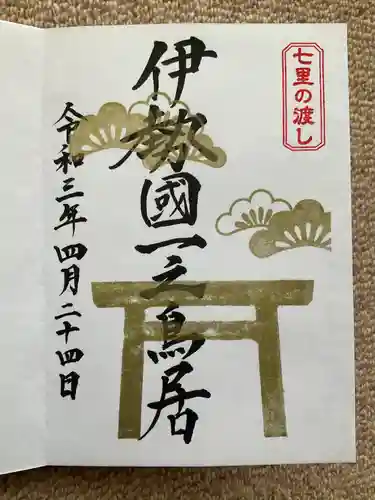 七里の渡し
伊勢國一之鳥居
令和三年四月二十四日